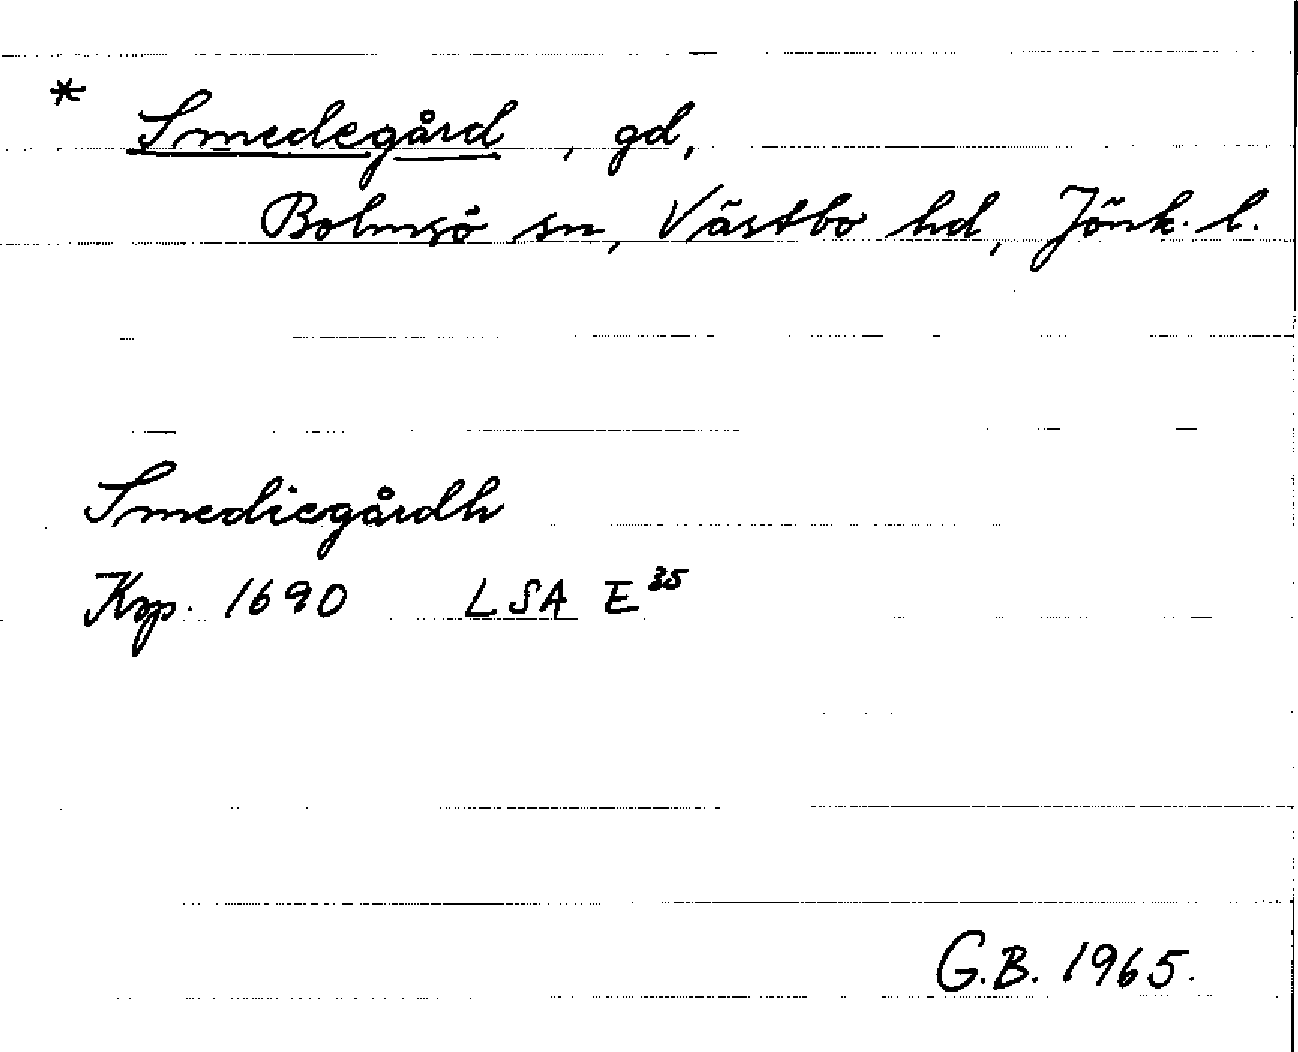 * Smedegård, gd,
Bolmsö sn, Västbo hd, Jönk. l.
Smediegårdh
Krp. 1690 LSA E 35
G.B. 1965.